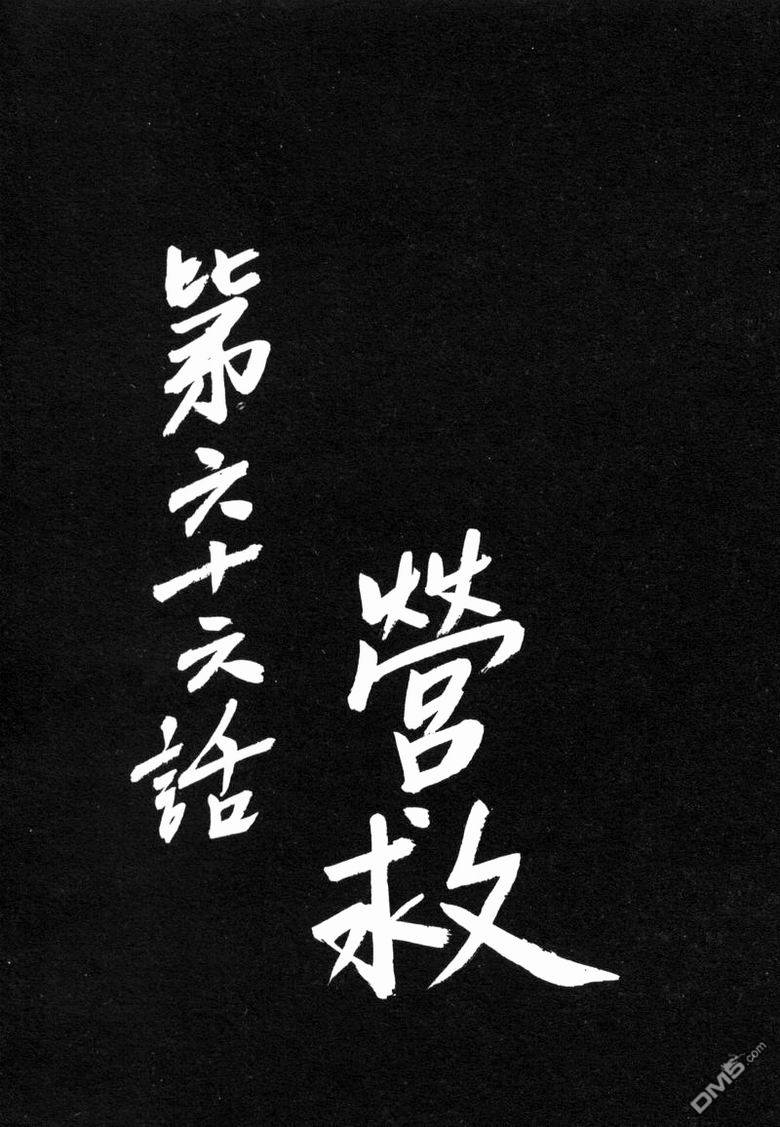 第六十六話
營救
DM5.com